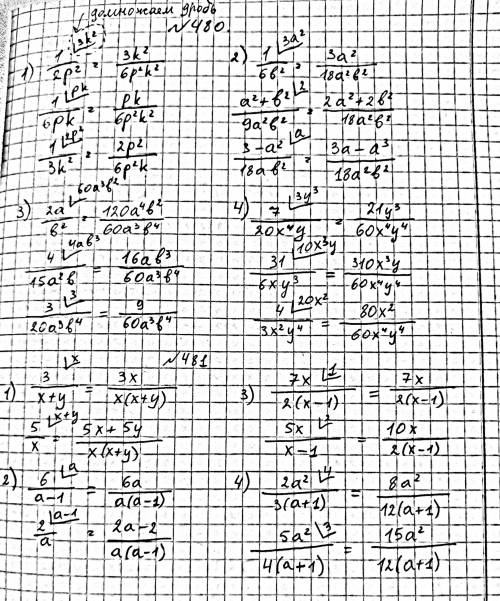 домножаем дробь
№480.
1) 1/2p² |3k² = 3k²/6p²k²
1/6pk |pk = pk/6p²k²
1/3k² |2p² = 2p²/6p²k
2) 1/6b² |3a² = 3a²/18a²b²
a²+b²/9a²b² |2 = 2a²+2b²/18a²b²
3-a²/18ab² |a = 3a-a³/18a²b²
3) 2a/b² |60a³b² = 120a⁴b²/60a³b⁴
4/15a²b |4ab³ = 16ab³/60a³b⁴
3/20a³b⁴ |3 = 9/60a³b⁴
4) 7/20x⁴y |3y³ = 21y³/60x⁴y⁴
31/6xy³ |10x³y = 310x³y/60x⁴y⁴
4/3x²y⁴ |20x² = 80x²/60x⁴y⁴
№481
1) 3/x+y |x = 3x/x(x+y)
5/x |x+y = 5x+5y/x(x+y)
2) 6/a-1 |a = 6a/a(a-1)
2/a |a-1 = 2a-2/a(a-1)
3) 7x/2(x-1) |1 = 7x/2(x-1)
5x/x-1 |2 = 10x/2(x-1)
4) 2a²/3(a+1) |4 = 8a²/12(a+1)
5a²/4(a+1) |3 = 15a²/12(a+1)